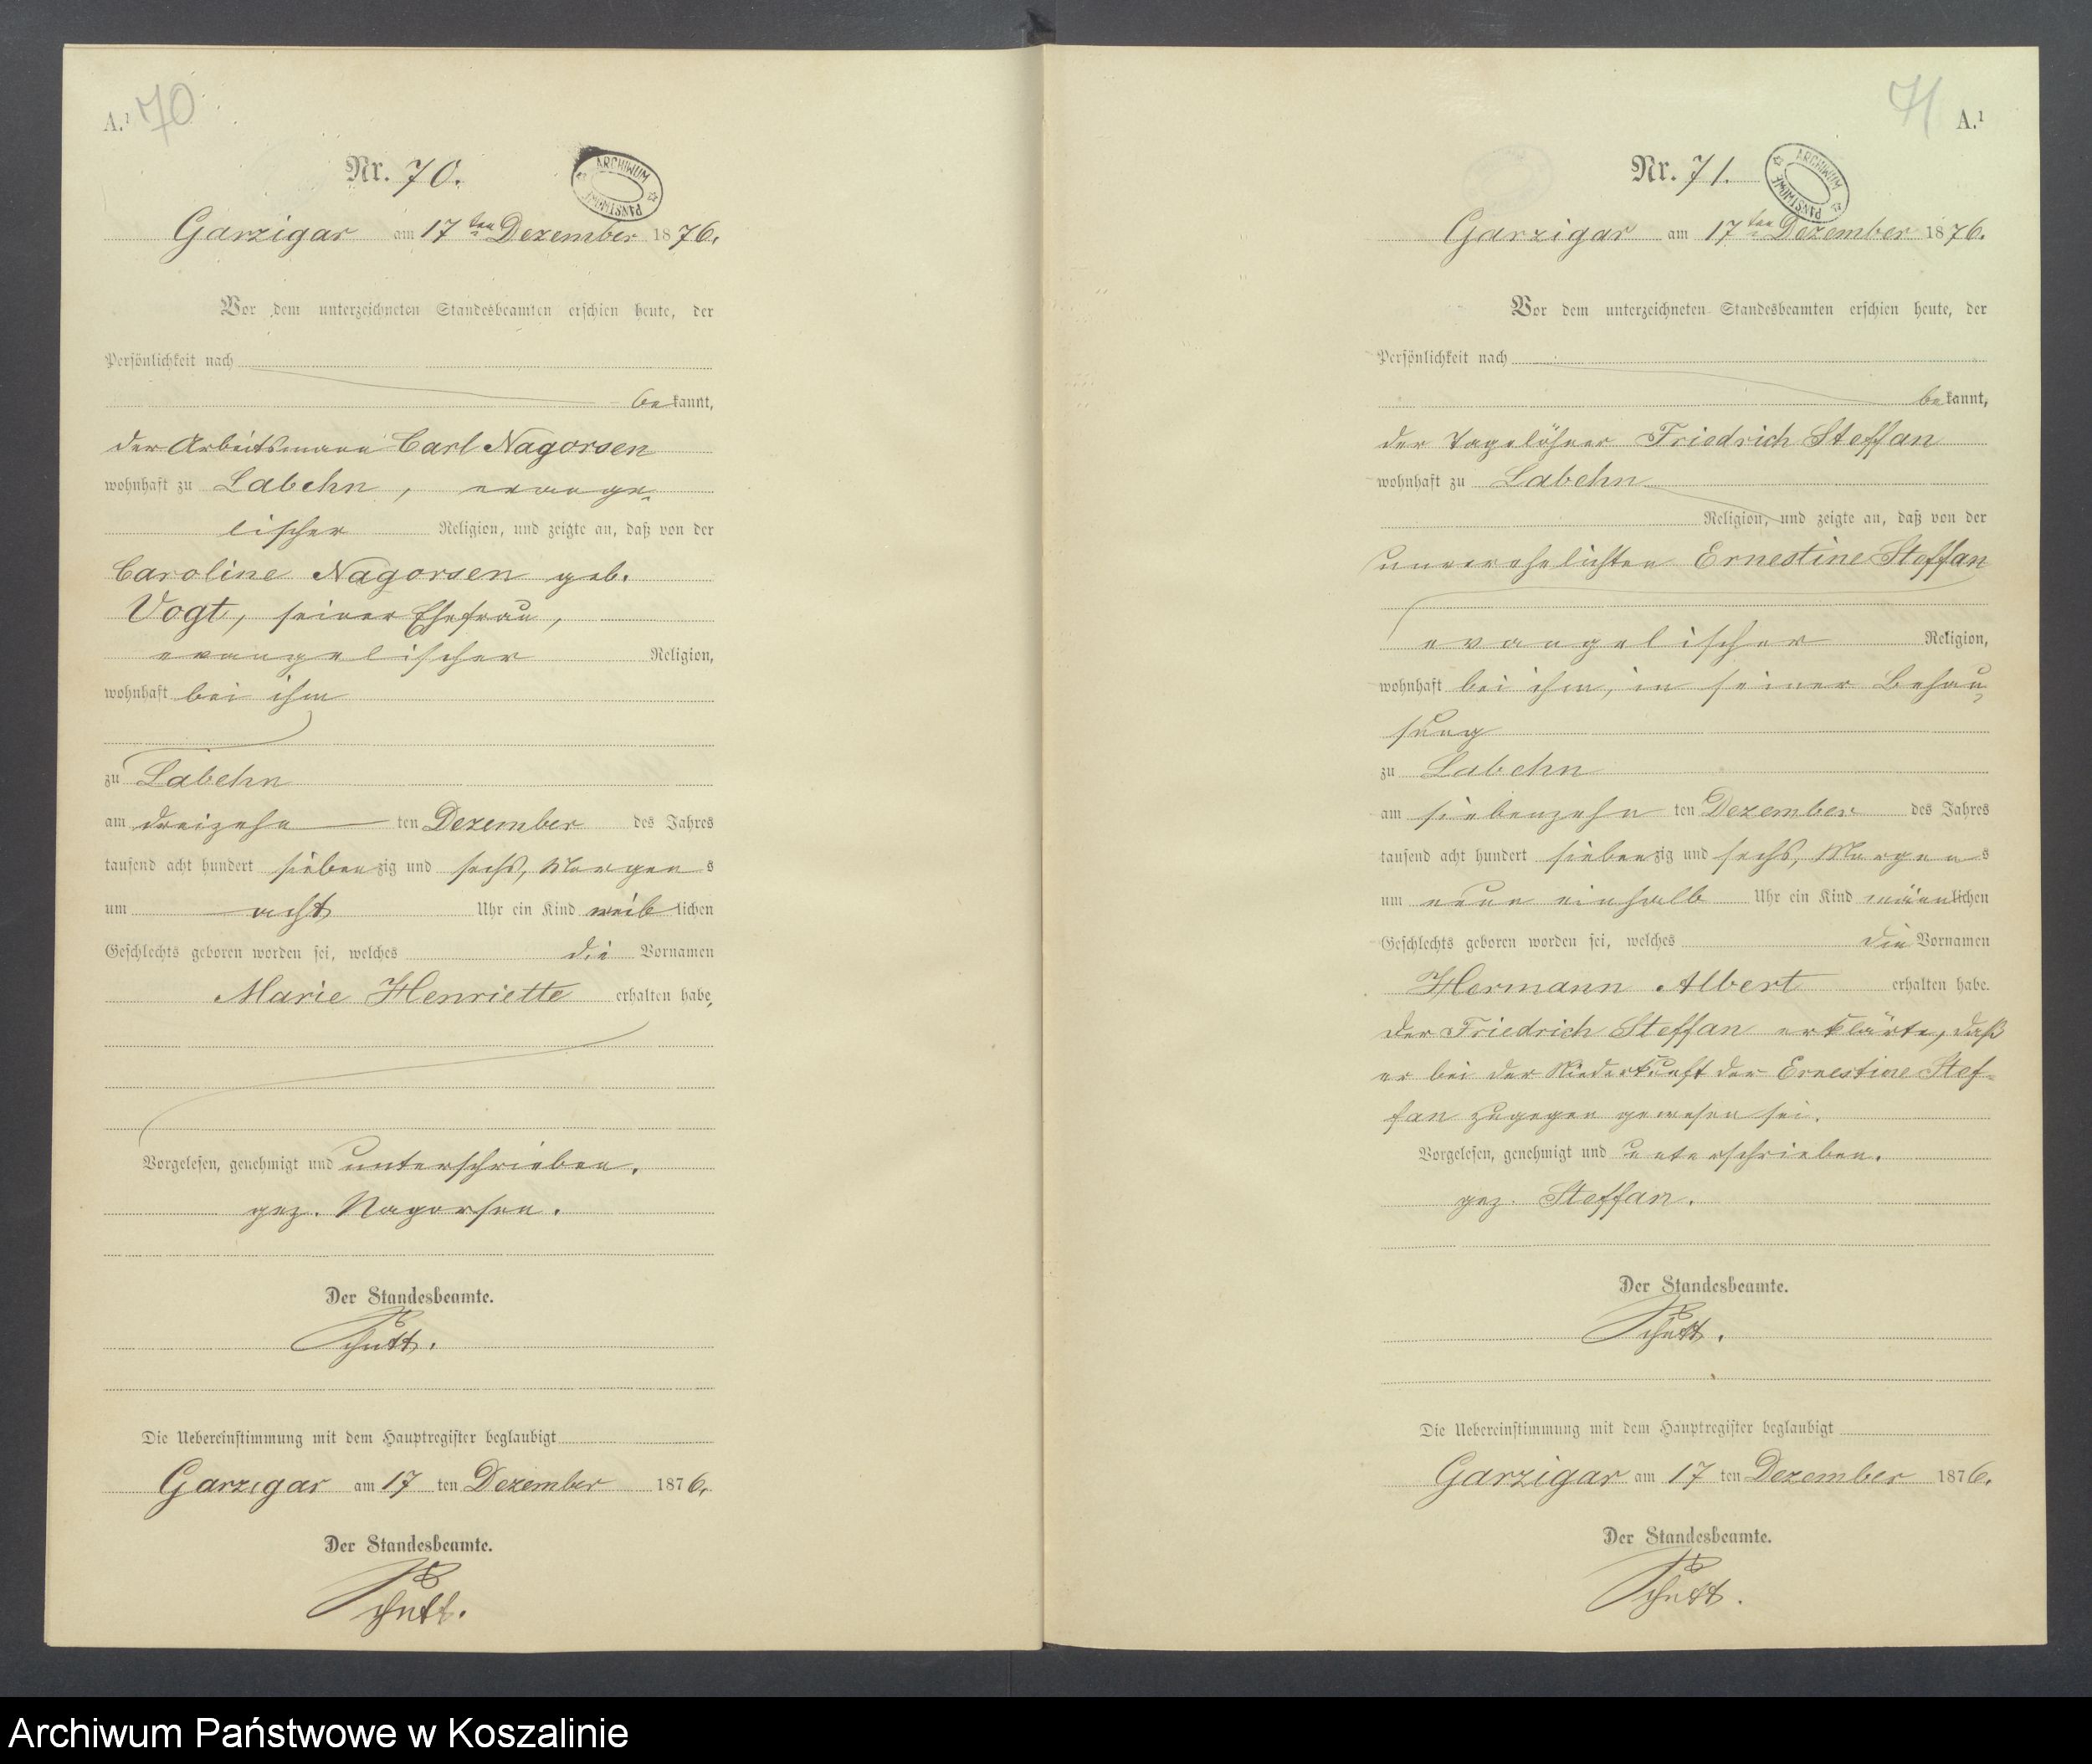 A.¹ 70
Nr. 70.
ARCHIWUM PAŃSTWOWE
Garzigar am 17ten Dezember 1876.
Vor dem unterzeichneten Standesbeamten erschien heute, der
Persönlichkeit nach
bekannt,
der Arbeitsmann Carl Nagorsen
wohnhaft zu Labehn, evange-
lischer Religion, und zeigte an, daß von der
Caroline Nagorsen geb.
Vogt, seiner Ehefrau,
evangelischer Religion,
wohnhaft bei ihm
zu Labehn
am dreizehn ten Dezember des Jahres
tausend acht hundert siebenzig und sechs, Morgens
um acht Uhr ein Kind weiblichen
Geschlechts geboren worden sei, welches die Vornamen
Marie Henriette erhalten habe,
Vorgelesen, genehmigt und unterschrieben.
gez. Nagorsen.
Der Standesbeamte.
Schutt.
Die Uebereinstimmung mit dem Hauptregister beglaubigt
Garzigar am 17 ten Dezember 1876.
Der Standesbeamte.
Schutt.
71 A.¹
Nr. 71.
ARCHIWUM PAŃSTWOWE
Garzigar am 17ten Dezember 1876.
Vor dem unterzeichneten Standesbeamten erschien heute, der
Persönlichkeit nach
bekannt,
der Tagelöhner Friedrich Steffan
wohnhaft zu Labehn
Religion, und zeigte an, daß von der
unverehelichten Ernestine Steffan
evangelischer Religion,
wohnhaft bei ihm, in seiner Behau-
sung
zu Labehn
am siebenzehn ten Dezember des Jahres
tausend acht hundert siebenzig und sechs, Morgens
um neun einhalb Uhr ein Kind männlichen
Geschlechts geboren worden sei, welches die Vornamen
Hermann Albert erhalten habe.
Der Friedrich Steffan erklärte, daß
er bei der Niederkunft der Ernestine Stef-
fan zugegen gewesen sei.
Vorgelesen, genehmigt und unterschrieben.
gez. Steffan.
Der Standesbeamte.
Schutt.
Die Uebereinstimmung mit dem Hauptregister beglaubigt
Garzigar am 17 ten Dezember 1876.
Der Standesbeamte.
Schutt.
Archiwum Państwowe w Koszalinie